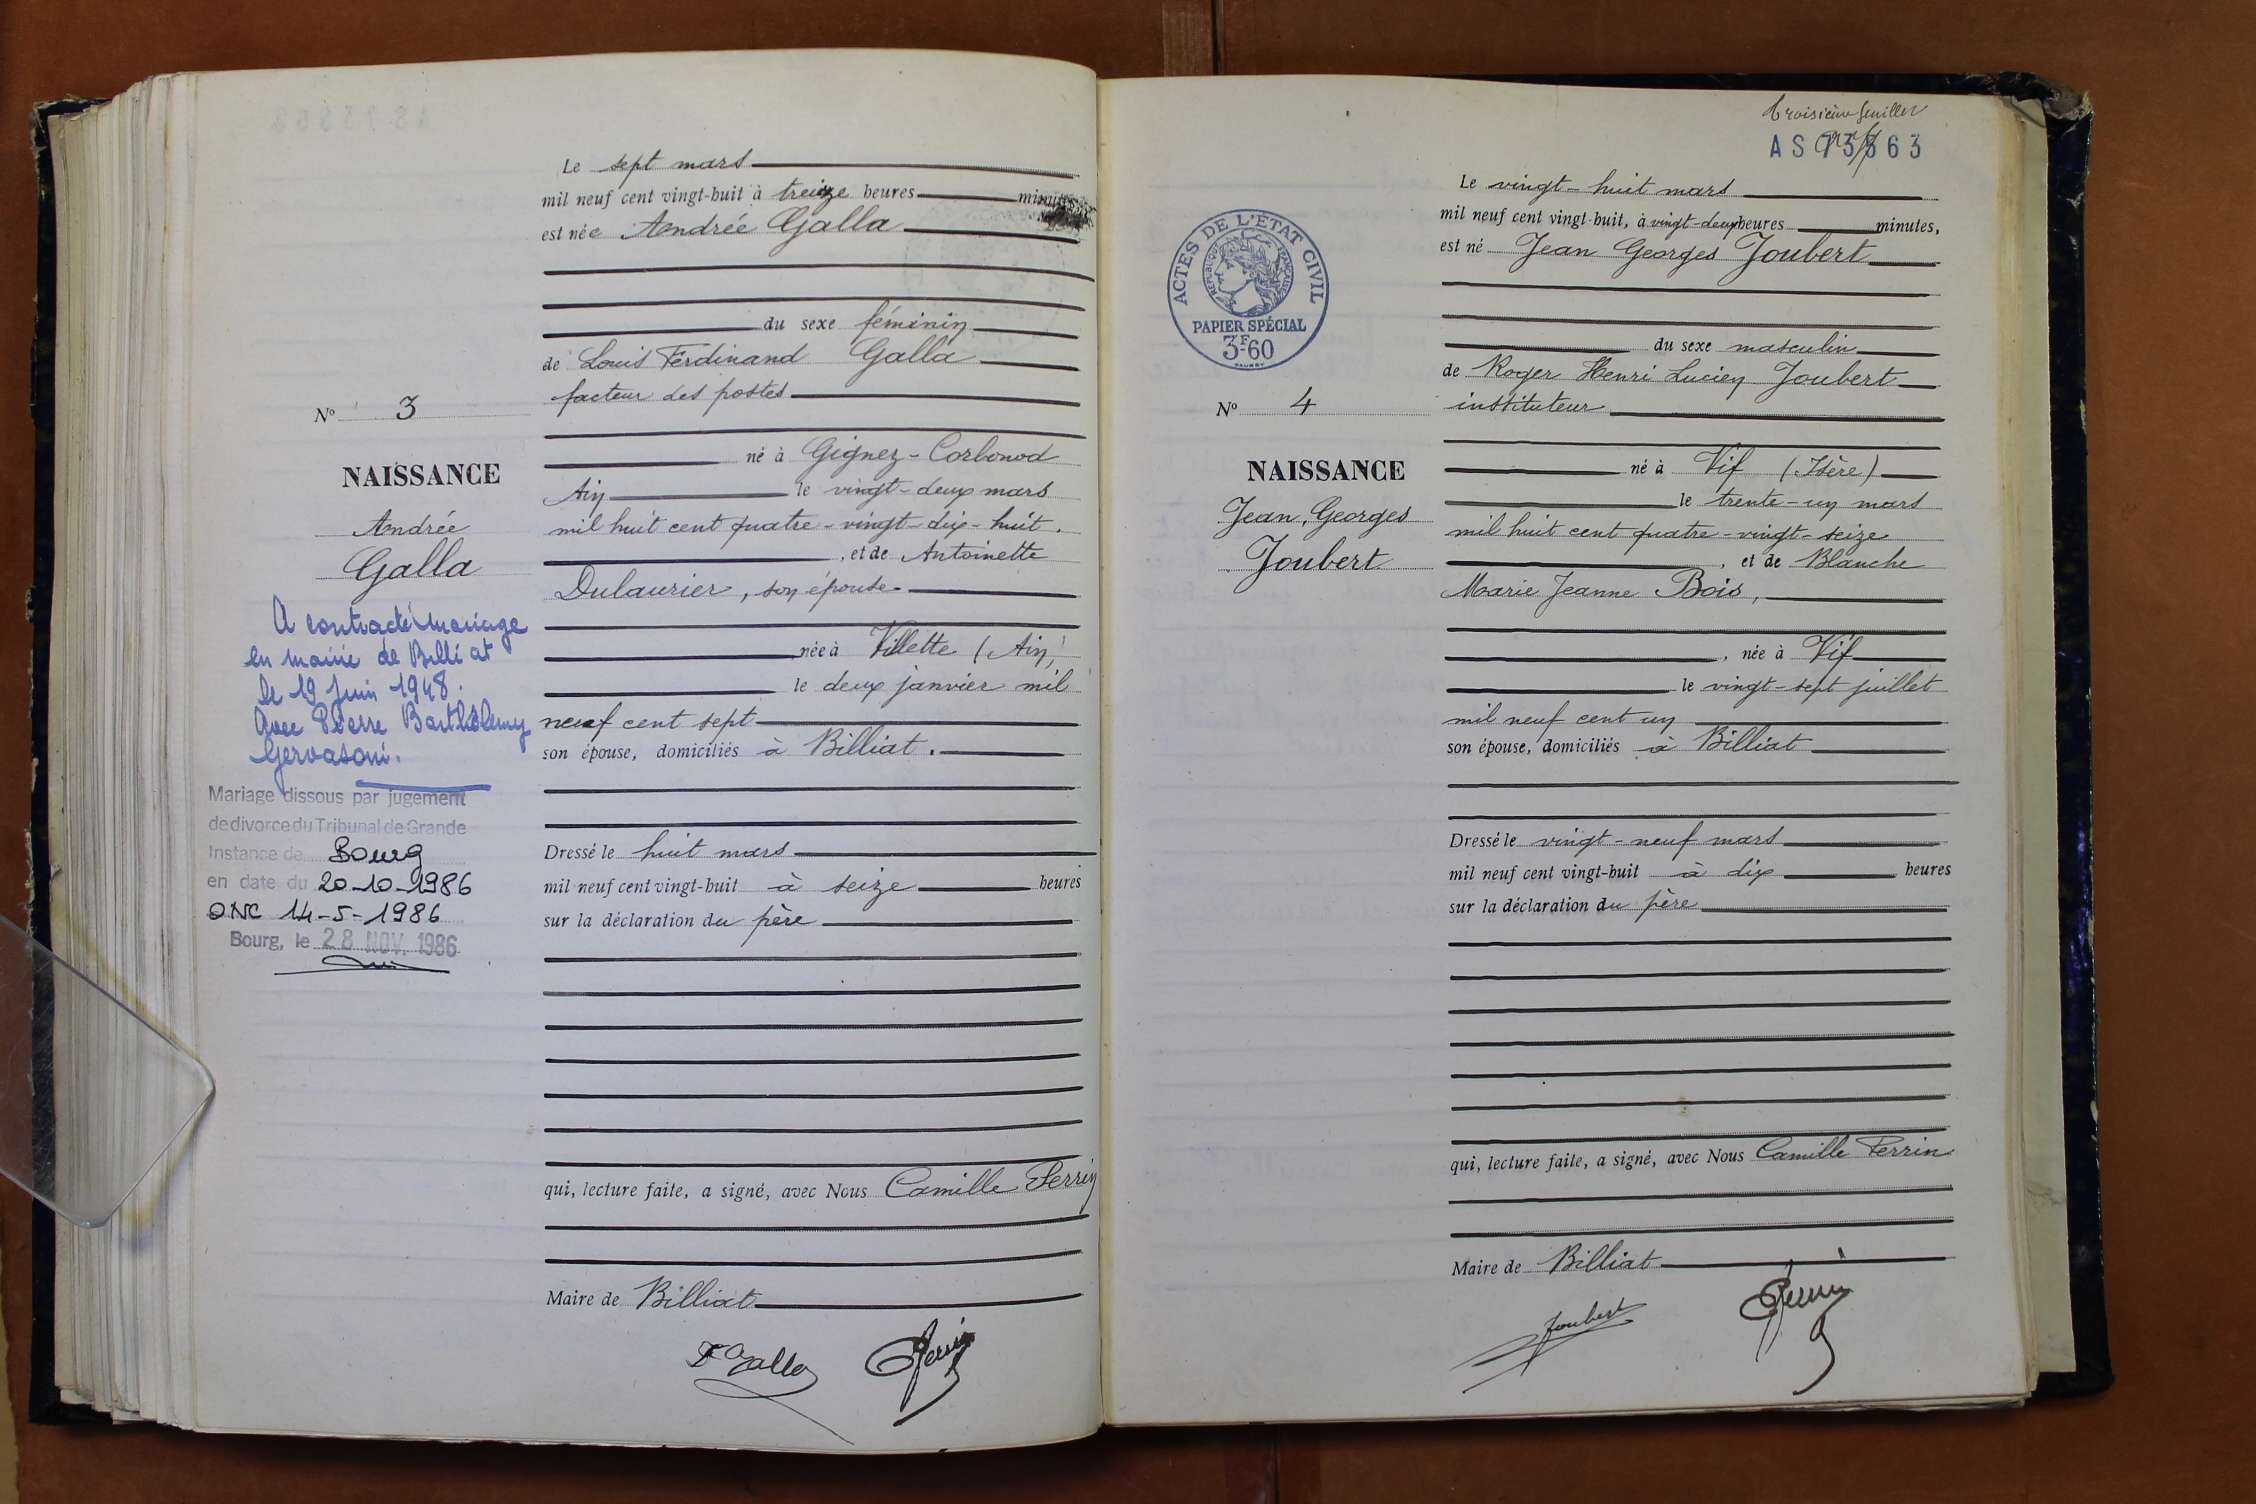 Le sept mars
mil neuf cent vingt-huit à treize heures minutes
est née Andrée Galla
du sexe féminin
de Louis Ferdinand Galla
facteur des postes
né à Gignez-Corbonod
Ain le vingt-deux mars
mil huit cent quatre-vingt-dix-huit.
, et de Antoinette
Dulaurier, son épouse
née à Villette (Ain)
le deux janvier mil
neuf cent sept
son épouse, domiciliés à Billiat.
Dressé le huit mars
mil neuf cent vingt-huit à seize heures
sur la déclaration du père
qui, lecture faite, a signé, avec Nous Camille Perrin
Maire de Billiat
Galla Perrin
No 3
NAISSANCE
Andrée
Galla
A contracté mariage
en mairie de Billiat
le 19 Juin 1948.
avec Pierre Barthélemy
Gervasoni.
Mariage dissous par jugement
de divorce du Tribunal de Grande
Instance de Bourg
en date du 20-10-1986
ONC 14-5-1986
Bourg, le 28 NOV. 1986
troisième feuillet
AS 73563
ACTES DE L'ÉTAT CIVIL
RÉPUBLIQUE FRANÇAISE
PAPIER SPÉCIAL
3F.60
No 4
NAISSANCE
Jean, Georges
Joubert
Le vingt-huit mars
mil neuf cent vingt-huit, à vingt-deux heures minutes,
est né Jean Georges Joubert
du sexe masculin
de Roger Henri Lucien Joubert
instituteur
né à Vif (Isère)
le trente-un mars
mil huit cent quatre-vingt-seize
, et de Blanche
Marie Jeanne Bois,
, née à Vif
le vingt-sept juillet
mil neuf cent un
son épouse, domiciliés à Billiat
Dressé le vingt-neuf mars
mil neuf cent vingt-huit à dix heures
sur la déclaration du père
qui, lecture faite, a signé, avec Nous Camille Perrin
Maire de Billiat
Joubert Perrin